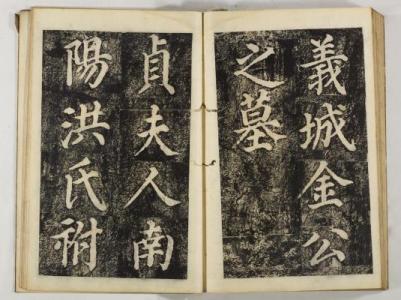 義城金公
之墓
貞夫人南
陽洪氏祔